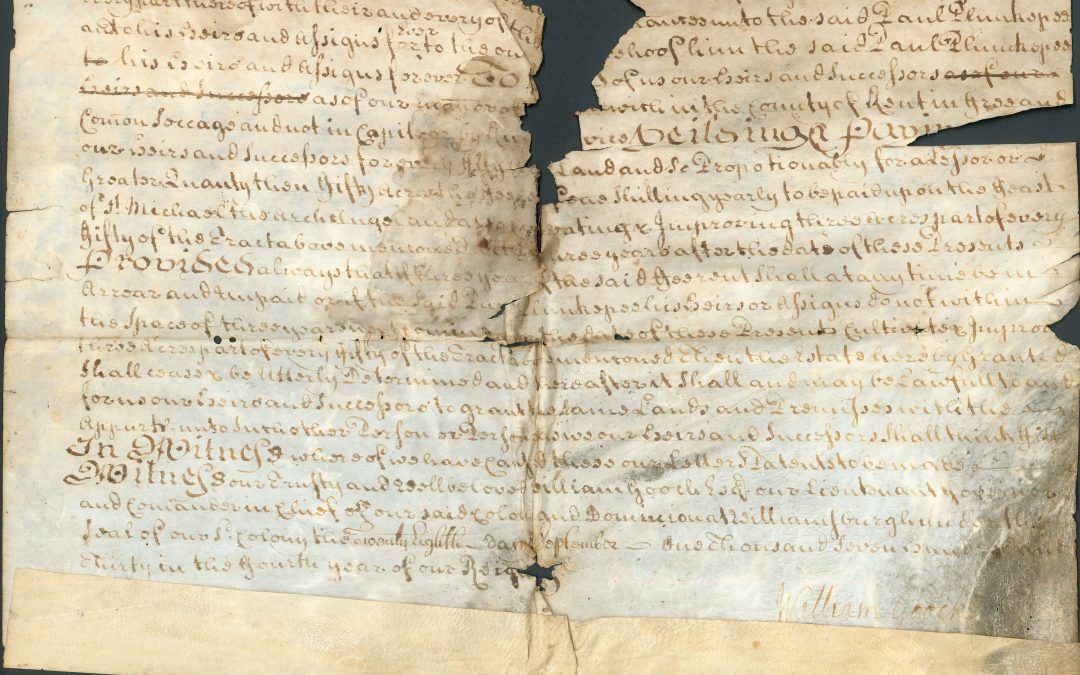 every part thereof with their and every of th
ances unto the said Paul Plunkepee
and his heirs and Assigns for Ever to the on
behoof him the said Paul Plunkepee
to his Heirs and Assigns forever To
of us our Heirs and Successors as of our
Heirs and Successors as of our mannor of
with in the County of Kent in Free and
Comon Soccage and not in Capite
vice Yeilding & Payin
our Heirs and Successors for every fifty
Land and So Propotionally for a Lesser or
Greater Quanty then fifty Acres the
One Shilling yearly to be paid upon the Feast
of St. Michael the Arch Angel and
vating & Improving three Acres part of every
fifty of the Tract above mentioned
hree years after the date of these Presents
Provided always that if three years
the said fee rent Shall at any time be in
Arrear and Unpaid or if the said Pau
lunkepee his Heirs or Assigns do not within
the Space of three years next comeing
the date of these Presents Cultivate & Improv
three Acres part of every fifty of the Tract
mentoned Then the Estate hereby Granted
Shall cease & be Utterly Determined and
hereafter it Shall and may be Lawfull to and
for us our Heirs and Successors to grant
the same Lands and Premises with the
Appurts. unto Such other Person or Persons
as we our Heirs and Successors Shall think fitt
In Witness where of we have Caused
these our Letters Patents to be made
Witness our Trusty and Well belove
William Gooch Esqr. our Lieutenant Governor
and Comander in Chief of our said Colony
and Dominion at Williamsburgh under the
Seal of our Sd. Colony the twenty Eighth day
September One Thousand Seven hundred and
Thirty in the fourth year of our Reign
William Gooch